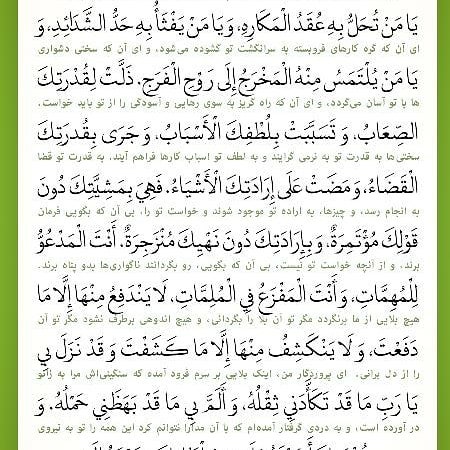 يَا مَنْ تُحَلُّ بِهِ عُقَدُ الْمَكَارِهِ، وَ يَا مَنْ يَفْثَأُ بِهِ حَدُّ الشَّدَائِدِ، وَ
ای آن که گره کارهای فروبسته به سرانگشت تو گشوده می‌شود، و ای آن که سختی دشواری
يَا مَنْ يُلْتَمَسُ مِنْهُ الْمَخْرَجُ إِلَى رَوْحِ الْفَرَجِ. ذَلَّتْ لِقُدْرَتِكَ
ها با تو آسان می‌گردد، و ای آن که راه گریز به سوی رهایی و آسودگی را از تو باید خواست.
الصِّعَابُ، وَ تَسَبَّبَتْ بِلُطْفِكَ الْأَسْبَابُ، وَ جَرَى بِقُدْرَتِكَ
سختی‌ها به قدرت تو به نرمی گرایند و به لطف تو اسباب کارها فراهم آیند. به قدرت تو قضا
الْقَضَاءُ، وَ مَضَتْ عَلَى إِرَادَتِكَ الْأَشْيَاءُ. فَهِيَ بِمَشِيَّتِكَ دُونَ
به انجام رسد، و چیزها، به اراده تو موجود شوند و خواست تو را، بی آن که بگویی فرمان
قَوْلِكَ مُؤْتَمِرَةٌ، وَ بِإِرَادَتِكَ دُونَ نَهْيِكَ مُنْزَجِرَةٌ. أَنْتَ الْمَدْعُوُّ
برند، و از آنچه خواست تو نیست، بی آن که بگویی، رو بگردانند ناگواری‌ها بدو پناه برند.
لِلْمُهِمَّاتِ، وَ أَنْتَ الْمَفْزَعُ فِي الْمُلِمَّاتِ، لَا يَنْدَفِعُ مِنْهَا إِلَّا مَا
هیچ بلایی از ما برنگردد مگر تو آن بلا را بگردانی، و هیچ اندوهی برطرف نشود مگر تو آن
دَفَعْتَ، وَ لَا يَنْكَشِفُ مِنْهَا إِلَّا مَا كَشَفْتَ وَ قَدْ نَزَلَ بِي
را از دل برانی. ای پروردگار من، اینک بلایی بر سرم فرود آمده که سنگینی‌اش مرا به زانو
يَا رَبِّ مَا قَدْ تَكَأَّدَنِي ثِقْلُهُ، وَ أَلَمَّ بِي مَا قَدْ بَهَظَنِي حَمْلُهُ. وَ
در آورده است، و به دردی گرفتار آمده‌ام که با آن مدارا نتوانم کرد این همه را تو به نیروی